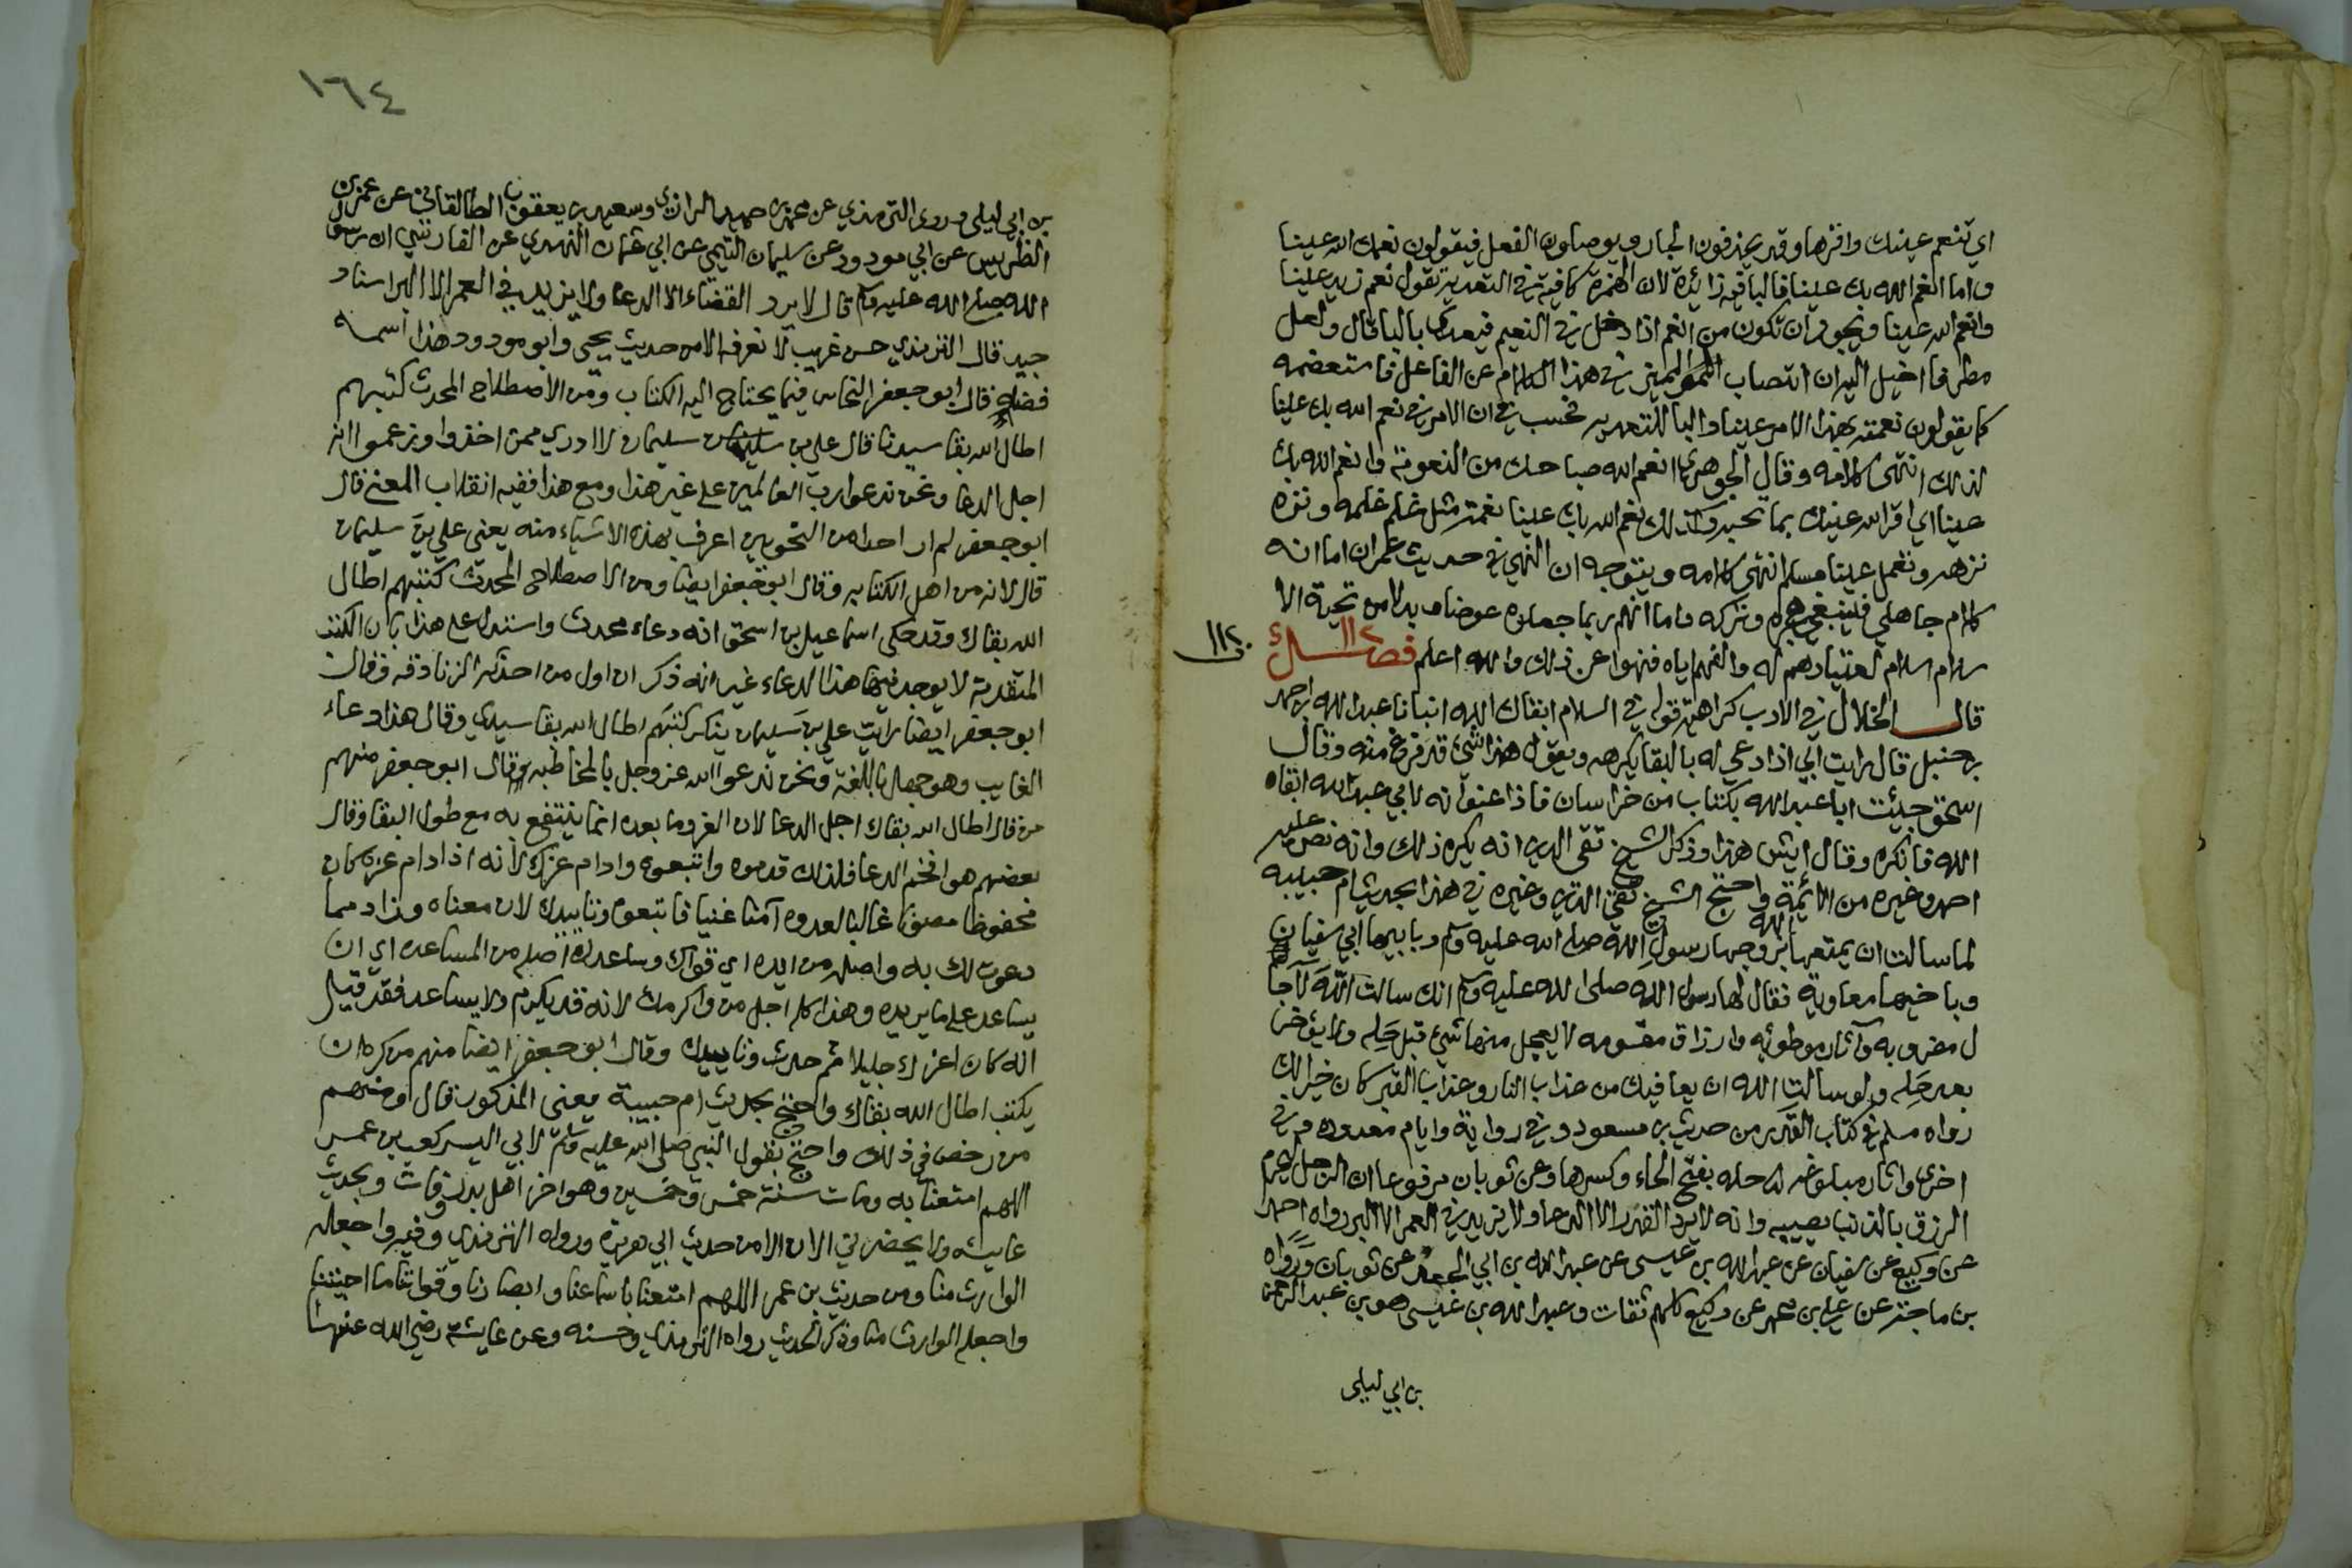 اي تنعم عينك واقرها وقد يحذفون الجار ويوصلون الفعل فيقولون نعمك الله عينا
واما انعم الله بك عينا فالبا فيه زائدة لان الهمزة كافية في التعدية تقول نعم زيد عينا
وانعم الله عينا ويجوز ان تكون من انعم اذا دخل في النعيم فيعدى بالبا قال ولعل
مطرفا اخيل اليه ان انتصاب المميز في هذا الكلام عن الفاعل فاستعضمه
كما يقولون نعمت بهذا الامر عينا والبا للتعدية فحسب في ان الامر في نعم الله بك عينا
لذلك انتهى كلامه وقال الجوهري انعم الله صباحك من النعومة وانعم الله بك
عينا اي اقر الله عينك بما تحب وكذلك نعم الله بك عينا نعمة مثل غلم غلمة ونزه
نزهه ونعمك عينا مسلم انتهى كلامه ويتوجه ان النهي في حديث عمران اما انه
كلام جاهلي فينبغي هجره وتركه واما انهم ربما جعلوه عوضا وبدلا من تحية الا
سلام السلام لعتيادهم له والفهم اياه فنهوا عن ذلك والله اعلم فصــل ١١٢
١١٢
قال الخلال في الادب كراهة قوله في السلام ابقاك الله انبانا عبد الله بن احمد
بن حنبل قال رايت ابي اذا دعي له بالبقا يكرهه ويقول هذا شئ قد فرغ منه وقال
اسحق جيئت ابا عبد الله بكتاب من خراسان فاذا عنوانه لابي عبد الله ابقاه
الله فانكره وقال ايش هذا وذكر الشيخ تقي الدين انه يكره ذلك وانه نص عليه
احمد وغيره من الائمة واحتج الشيخ تقي الدين وغيره في هذا بحديث ام حبيبه
لما سالت ان يمتعها الله بزوجها رسول الله صلى الله عليه وسلم وبابيها ابي سفيان
وباخيها معاوية فقال لها رسول الله صلى الله عليه وسلم انك سالت الله لآجا
ل مضروبه وآثار موطوئه وارزاق مقسومه لا يعجل منها شئ قبل حله ولا يؤخر
بعد حله ولو سالت الله ان يعافيك من عذاب النار وعذاب القبر كان خيرا لك
رواه مسلم في كتاب القدر من حديث بن مسعود وفي رواية وايام معدوده وفي
اخرى واثار مبلوغه حله بفتح الحاء وكسرها وعن ثوبان مرفوعا ان الرجل ليحرم
الرزق بالذنب يصيبه وانه لا يرد القدر الا الدعا ولا يزيد في العمر الا البر رواه احمد
عن وكيع عن سفيان عن عبد الله بن عيسى عن عبد الله بن ابي الجعد عن ثوبان ورواه
بن ماجه عن علي بن محمد عن وكيع كلهم ثقات وعبد الله بن عيسى هو بن عبد الرحمن
بن ابي ليلى
١٦٤
بن ابي ليلى وروى الترمذي عن محمد بن حميد الرازي وسعيد بن يعقوب الطالقاني عن يحيى بن
الظريس عن ابي مودود عن سليمان التيمي عن ابي عثمان النهدي عن الفارسي ان رسول
الله صلى الله عليه وسلم قال لا يرد القضاء الا الدعا ولا يزيد في العمر الا البر اسناد
جيد قال الترمذي حسن غريب لا نعرفه الا من حديث يحيى وابو مودود هذا اسمه
فضه قال ابو جعفر النحاس فيما يحتاج اليه الكتاب ومن الاصطلاح المحدث كتبهم
اطال الله بقا سيدنا قال علي بن سليمان لا ادري ممن اخذوا وزعموا انه
اجل الدعا ونحن ندعوا رب العالمين على غير هذا ومع هذا ففيه انقلاب المعنى قال
ابو جعفر لم ار احدا من النحويين اعرف بهذه الاشياء منه يعني علي بن سليمان
قال لانه من اهل الكتابه وقال ابو جعفر ايضا ومن الاصطلاح المحدث كتبهم اطال
الله بقاك وقد حكى اسماعيل بن اسحق انه دعاء محدث واستدل على هذا بان الكتب
المتقدمة لا يوجد فيها هذا الدعاء غير انه ذكر ان اول من احدثه الزنادقه وقال
ابو جعفر ايضا رايت علي بن سليمان ينكر كتبهم اطال الله بقا سيدي وقال هذا دعاء
الغايب وهو جهل باللغة ونحن ندعوا الله عز وجل بالمخاطبه وقال ابو جعفر منهم
من قال اطال الله بقاك اجل الدعا لان العز وما بعده انما ينتفع به مع طول البقا وقال
بعضهم هو افخم الدعا فلذلك قدموه واتبعوه وادام عزك لانه اذا دام عزه كان
محفوظا مصونا غالبا لعدوه آمنا غنيا فاتبعوه وتاييدك لان معناه وزاد مما
دعوت لك به واصله من ايده اي قواك وساعدك اصله من المساعده اي ان
يساعد على ما يريده وهذا كله اجل من واكرمك لانه قد يكرم ولا يساعد فقد قيل
انه كان اعزك جليلا ثم حدث وتاييدك وقال ابو جعفر ايضا منهم من كره ان
يكتب اطال الله بقاك واحتج بحديث ام حبيبة يعني المذكور قال ومنهم
من رخص في ذلك واحتج بقول النبي صلى الله عليه وسلم لابي اليسر كعب بن عمر
اللهم امتعنا به ومات سنة خمس وخمسين وهو اخر اهل بدر وفاة وبحديث
عايشه ولا يحضرني الان الا من حديث ابي هريرة ورواه الترمذي وفيه واجعله
الوارث منا ومن حديث بن عمر اللهم امتعنا باسماعنا وابصارنا وقواتنا ما احييتنا
واجعله الوارث منا وذكر الحديث رواه الترمذي وحسنه وعن عايشة رضي الله عنها